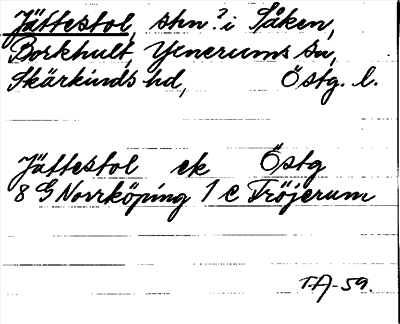 Jättestol, stn? i Såken,
Borkhult, Yxnerums sn,
Skärkinds hd, Östg. l.
Jättestol ek Östg
8 G Norrköping 1 c Fröjerum
T.A-59.